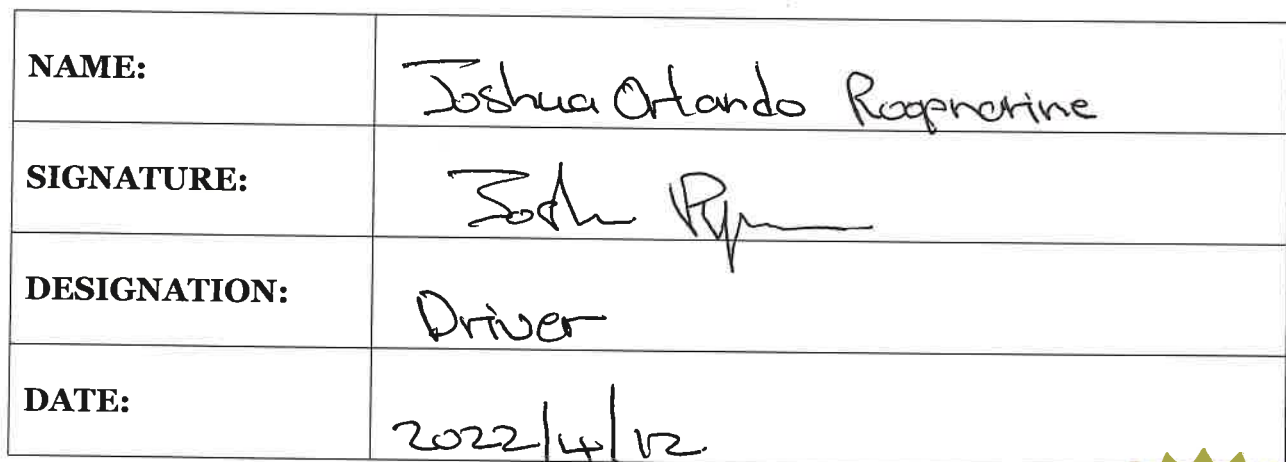 NAME: Joshua Orlando Roopnarine
SIGNATURE:
DESIGNATION: Driver
DATE: 2022/4/12